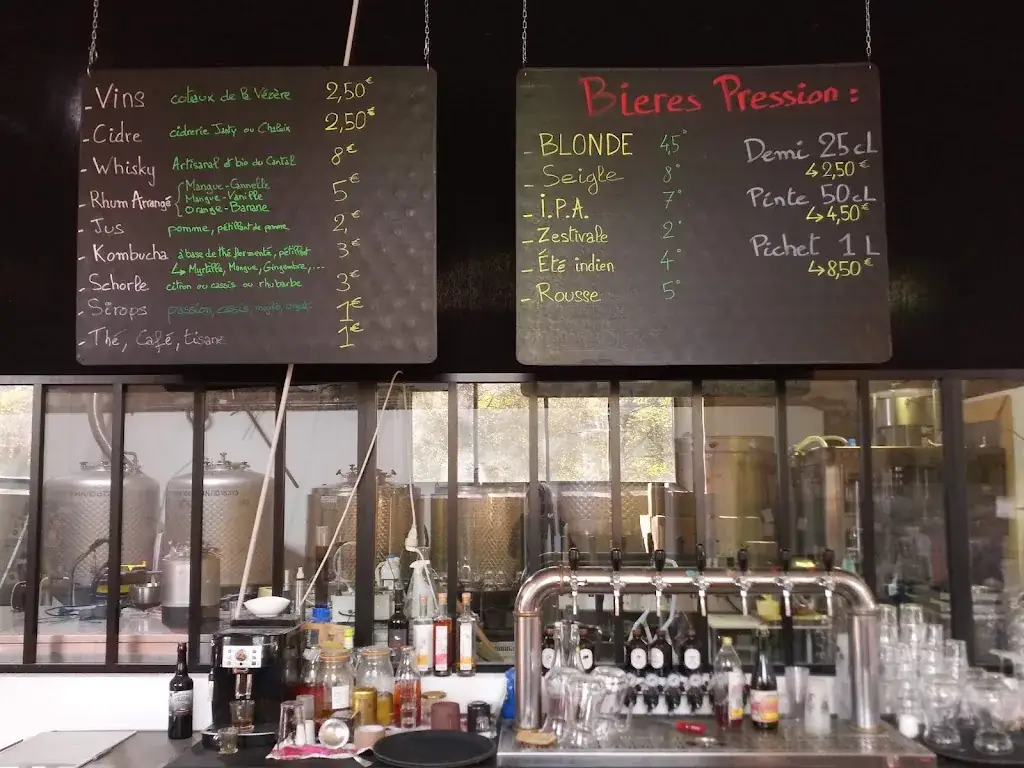 - Vins coteaux de la Vézère 2,50€
- Cidre cidrerie ou 2,50€
- Whisky Artisanal et bio du Cantal 8€
- Rhum Arrangé { Mangue-Cannelle 5€
Mangue-Vanille
Orange-Banane
- Jus pomme, pétillant de pomme 2€
- Kombucha à base de thé fermenté, pétillant 3€
↳ Myrtille, Mangue, Gingembre,...
- Schorle citron ou cassis ou rhubarbe 3€
- Sirops passion, cassis, mojito, 1€
- Thé, Café, tisane 1€
Bieres Pression :
- BLONDE 4,5°
- Seigle 8°
- I.P.A. 7°
- Zestivale 2°
- Été indien 4°
- Rousse 5°
Demi 25 cL
↳ 2,50€
Pinte 50 cL
↳ 4,50€
Pichet 1 L
↳ 8,50€